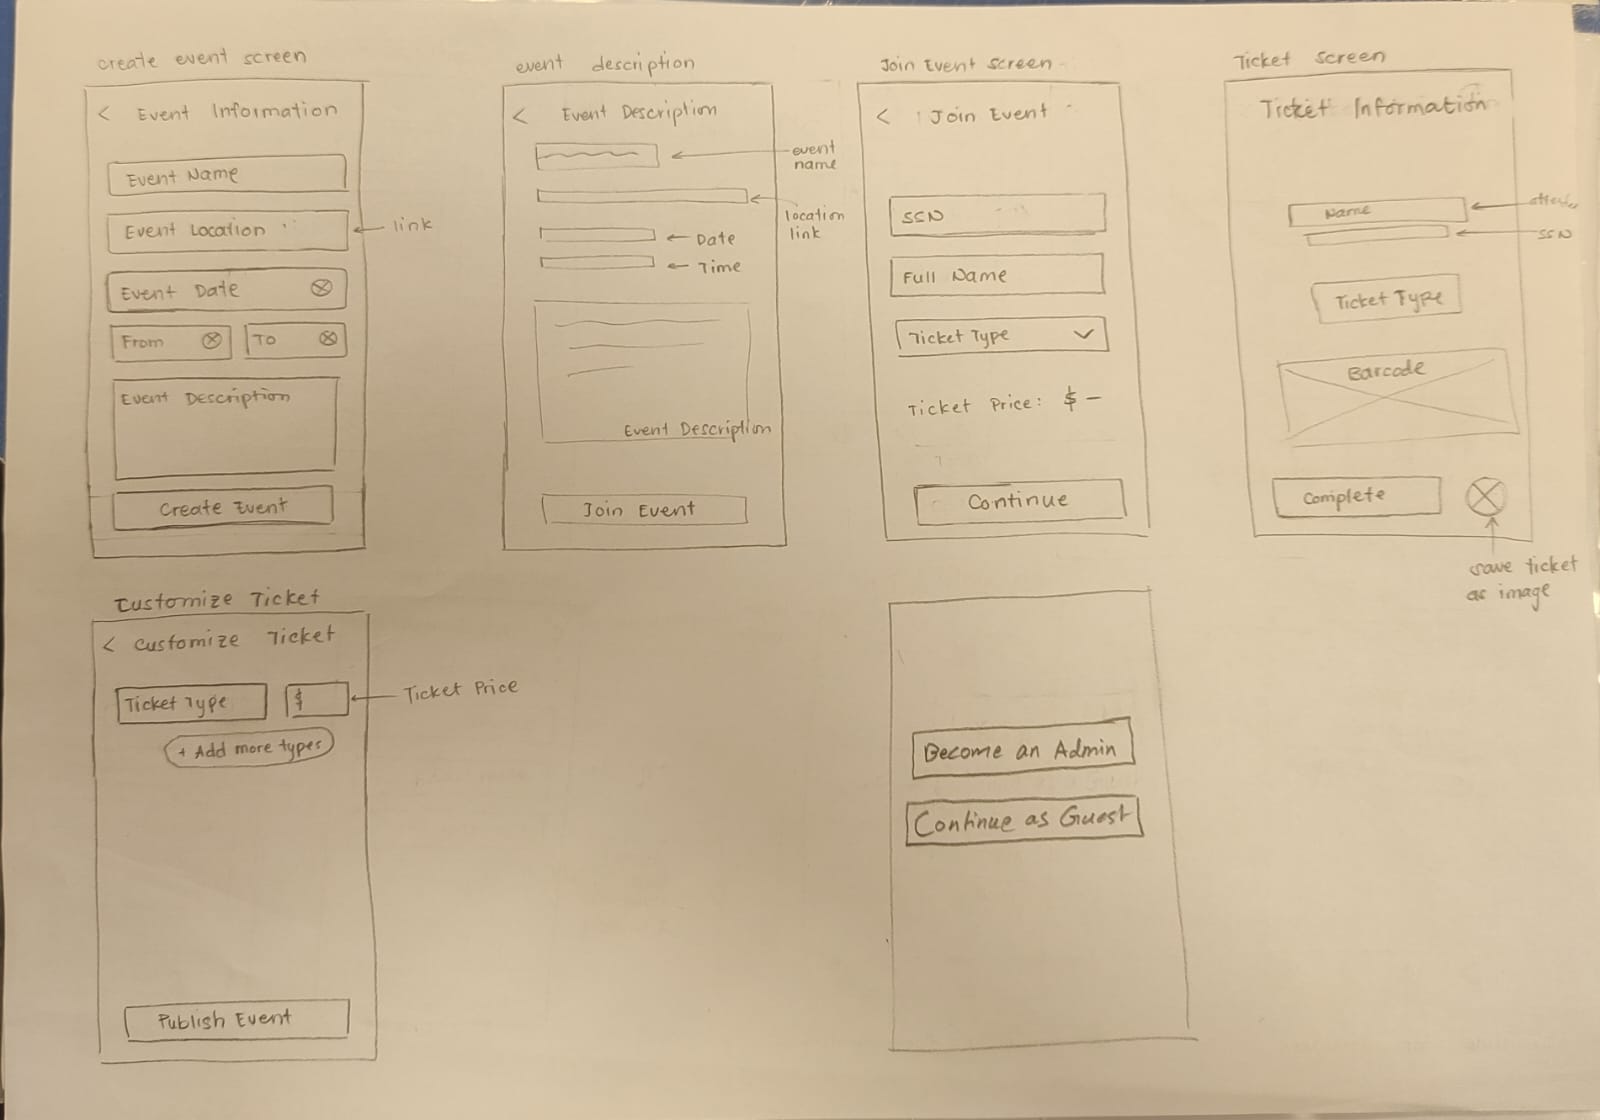 create event screen
< Event Information
Event Name
Event Location
link
Event Date
From
To
Event Description
Create Event
event description
< Event Description
event name
location link
Date
Time
Event Description
Join Event
Join Event Screen
< Join Event
SSN
Full Name
Ticket Type
Ticket Price: $ -
Continue
Ticket Screen
Ticket Information
Name
SSN
Ticket Type
Barcode
Complete
save ticket
as image
Customize Ticket
< Customize Ticket
Ticket Type
$
Ticket Price
+ Add more types
Publish Event
Become an Admin
Continue as Guest